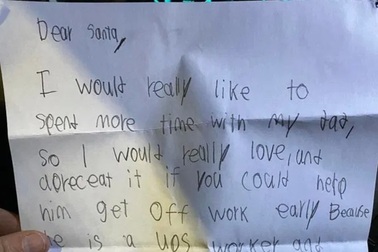 Dear Santa,
I would really like to
spent more time with my dad,
so I would really love, and
apreceat it if you could help
him get off work early Because
he is a ups worker and